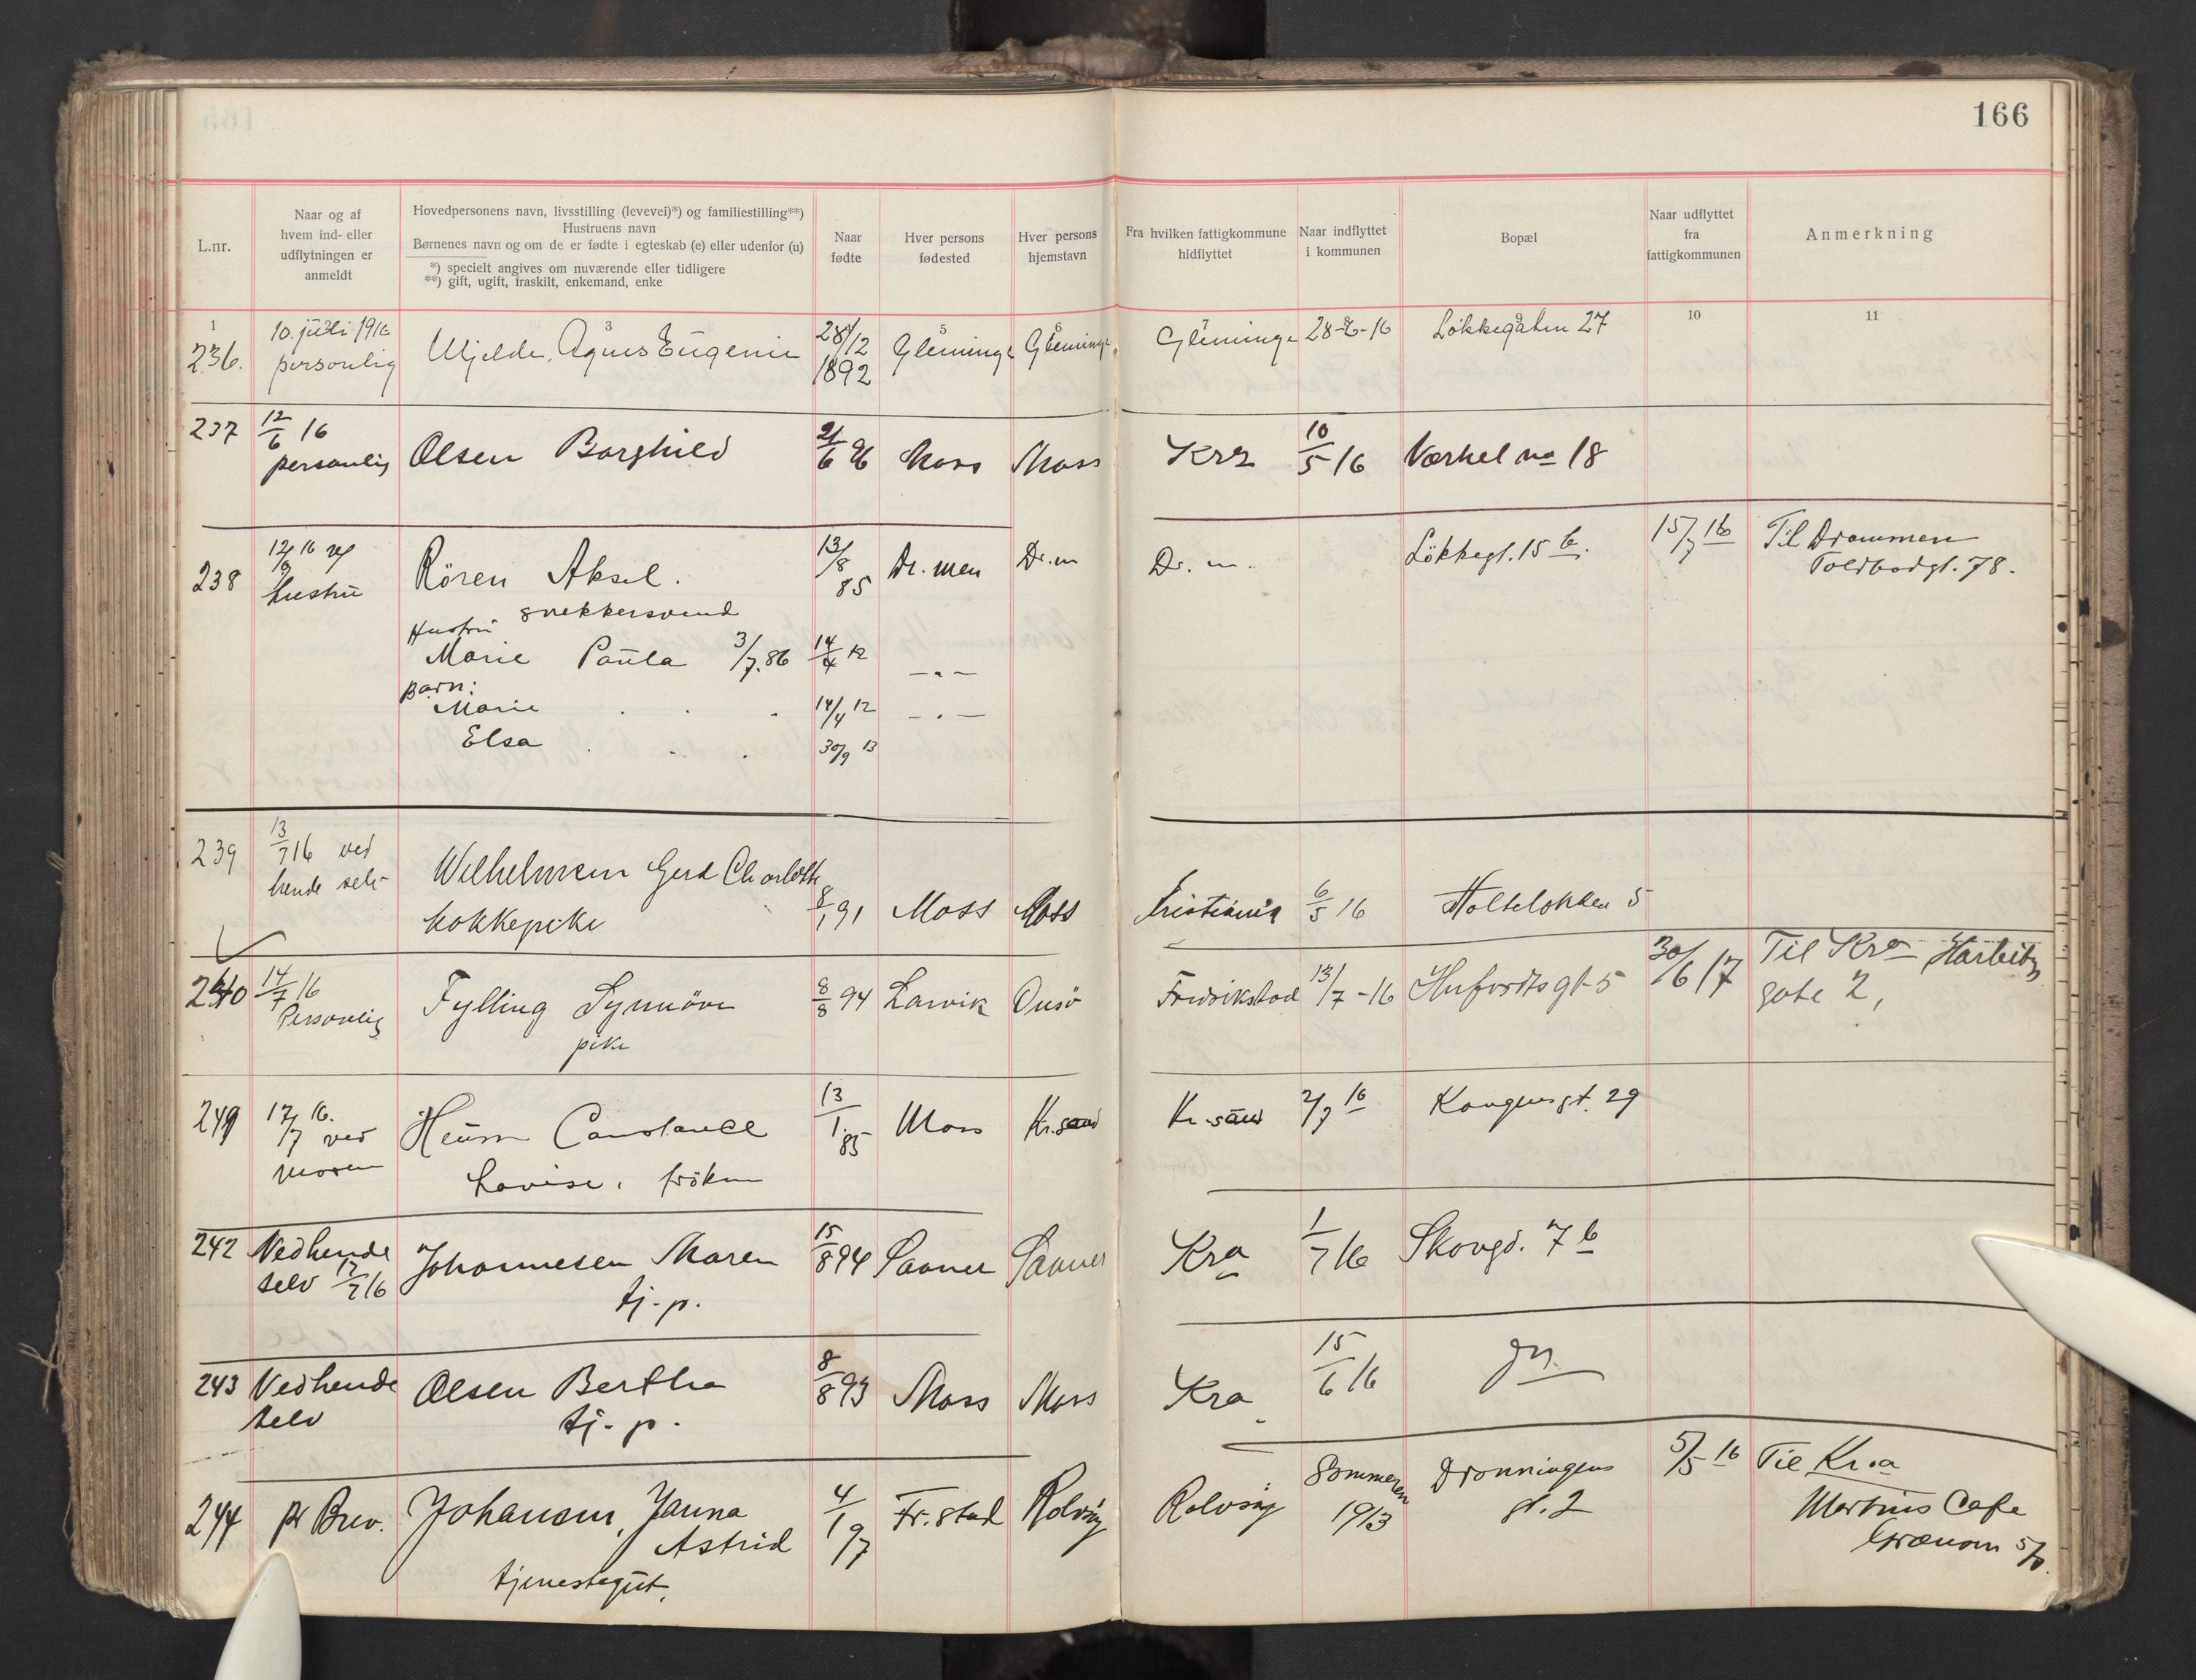 166
L.nr.
Naar og af
hvem ind- eller
udflytningen er
anmeldt
Hovedpersonens navn, livsstilling (levevei)*) og familiestilling**)
Hustruens navn
Børnenes navn og om de er fødte i egteskab (e) eller udenfor (u)
*) specielt angives om nuværende eller tidligere
**) gift, ugift, fraskilt, enkemand, enke
Naar
fødte
Hver persons
fødested
Hver persons
hjemstavn
Fra hvilken fattigkommune
hidflyttet
Naar indflyttet
i kommunen
Bopæl
Naar udflyttet
fra
fattigkommunen
Anmerkning
1 3 5 10 11
236. 10. juli 1916 28/12 Glemminge 28-6-16 Løkkegaten 27
personlig Mjelde, Agnes Eugenie 1892
237 12/6 16 Olsen Borghild 21/6 96 Moss Moss 10/5 16 Værket no 18
personlig
238 Røren Aksel. 13/8 85 Dr.men Dr.m Dr. m. Løkkegt. 15 b. 15/7 16 Til Drammen
hustru Toldbodgt. 78.
snekkersvend
Hustru
Marie Paula 3/7.86 14/4 12 -"-
Barn:
Marie 14/4 12 -"-
Elsa 30/9 13
239 13/7 16 ved
hende selv Wilhelmsen Gerd Charlotte
kokkepike 8/1 91 Moss Moss Kristiania 6/5 16 Holteløkken 5
240 14/7 16 Fylling Synnøve 8/8 94 Larvik Onsø Fredrikstad 13/7-16 30/6 17 Til Kra Harbitz
Personlig pike gate 2,
17/7 16. ved
moren Constance 13/1 85 Moss Kr.sand Kr.sand 2/7 16 Kongensgt. 29
Lovise, frøken
242 Ved hende
selv 17/7 16 Johannesen Maren 15/8 94 Saaner Saaner Kra 1/7 16 Skovgd. 7 b
tj.-p.
243 Ved hende
selv Olsen Bertha 8/8 93 Moss Moss Kra 15/6 16
tj.-p.
244 pr Brev. Johansen, Janna
Astrid 4/1 97 Fr.stad Rolvsøy Rolvsøy Sommeren
1913 Dronningens
gt. 2 5/5 16 Til Kr.a
tjenestegut. Martins Cafe